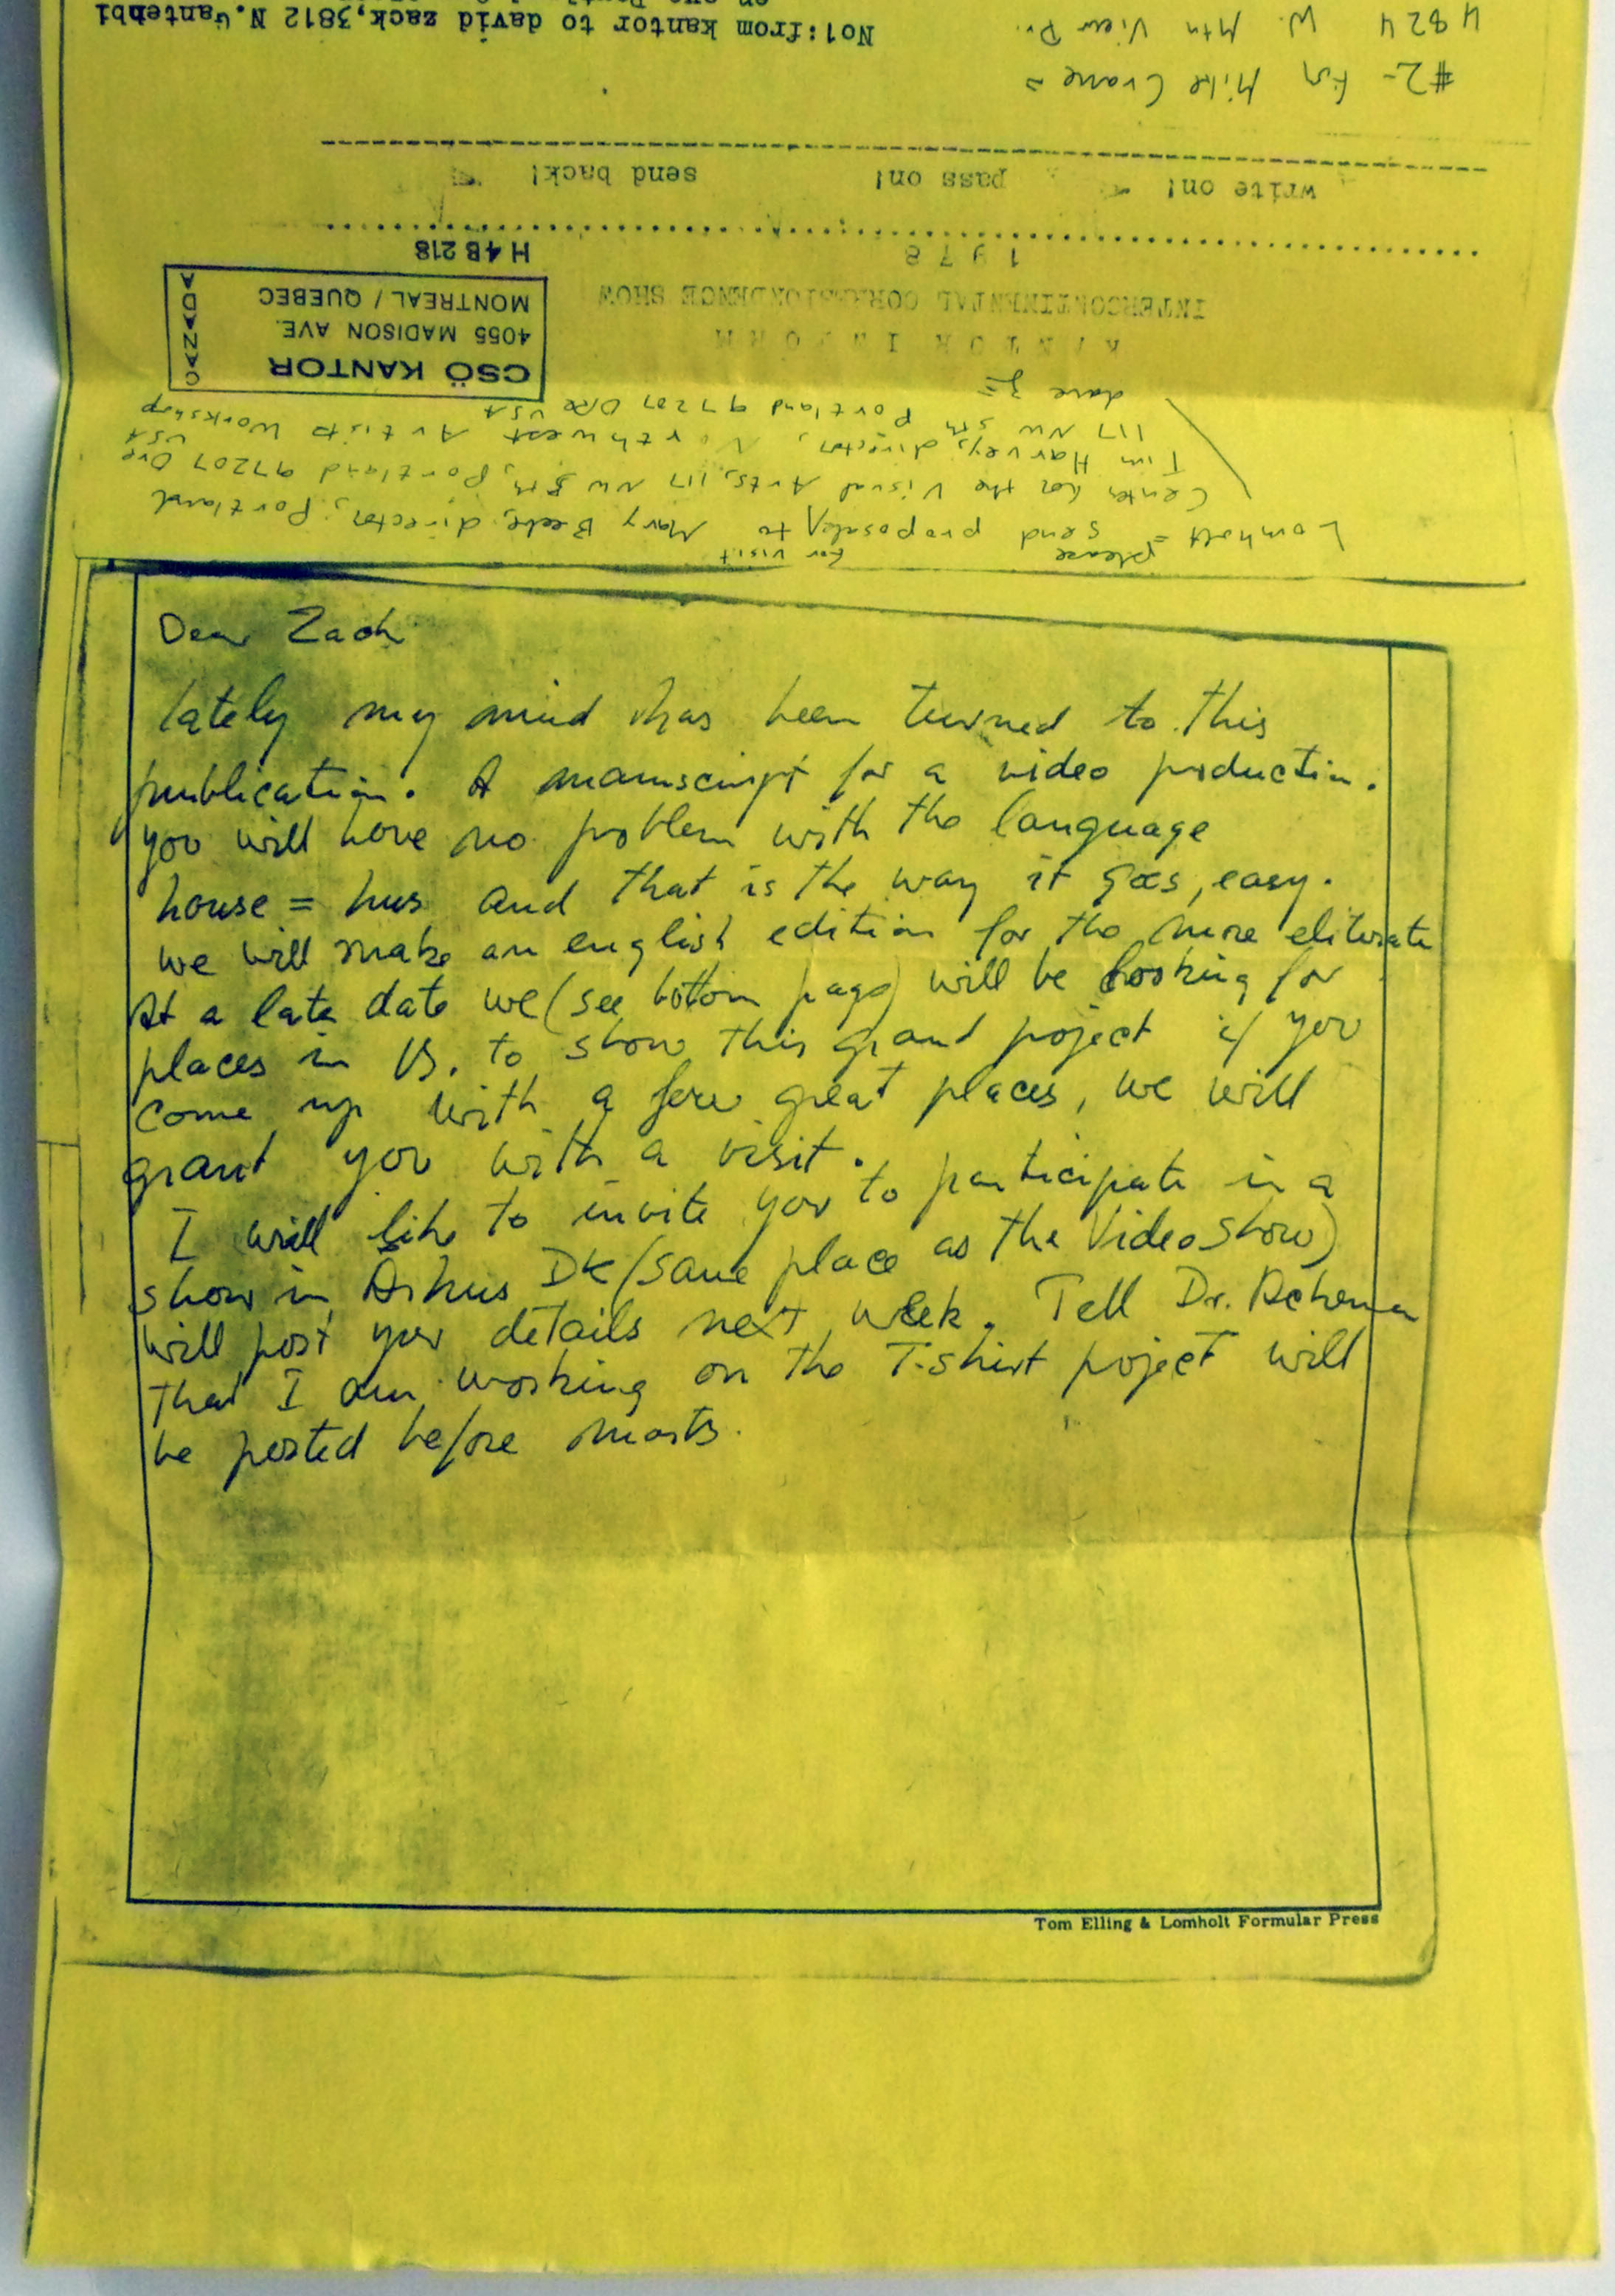 Dear Zack
lately my mind has been turned to this
publication. A manuscript for a video production.
you will have no problem with the language
house = hus and that is the way it goes, easy.
we will make an english edition for the more eliterate
At a late date we (see bottom page) will be looking for
places in US. to show this grand project if you
come up with a few great places, we will
grant you with a visit.
I will like to invite you to participate in a
show in Århus DK (same place as the Video Show)
will post you details next week. Tell Dr. Ackerman
that I am working on the T-shirt project will
be posted before marts.
Tom Elling & Lomholt Formular Press
Lomholt = please send proposal for visit to Mary Beebe, director, Portland
Center for the Visual Arts, 117 NW 5th, Portland 97209 Ore USA
Tim Harvey, director, Northwest Artists Workshop
117 NW 5th Portland 97209 ORE USA
dave z =
CSÖ KANTOR
4055 MADISON AVE.
MONTREAL / QUEBEC
CANADA
H4B 2T8
KANTOR INFORM
INTERCONTINENTAL CORRESPONDENCE SHOW
1978
write on! pass on! send back!
#2- for Mike Crane =
4824 W. Mtn View Dr.
No1:from kantor to david zack,3812 N.